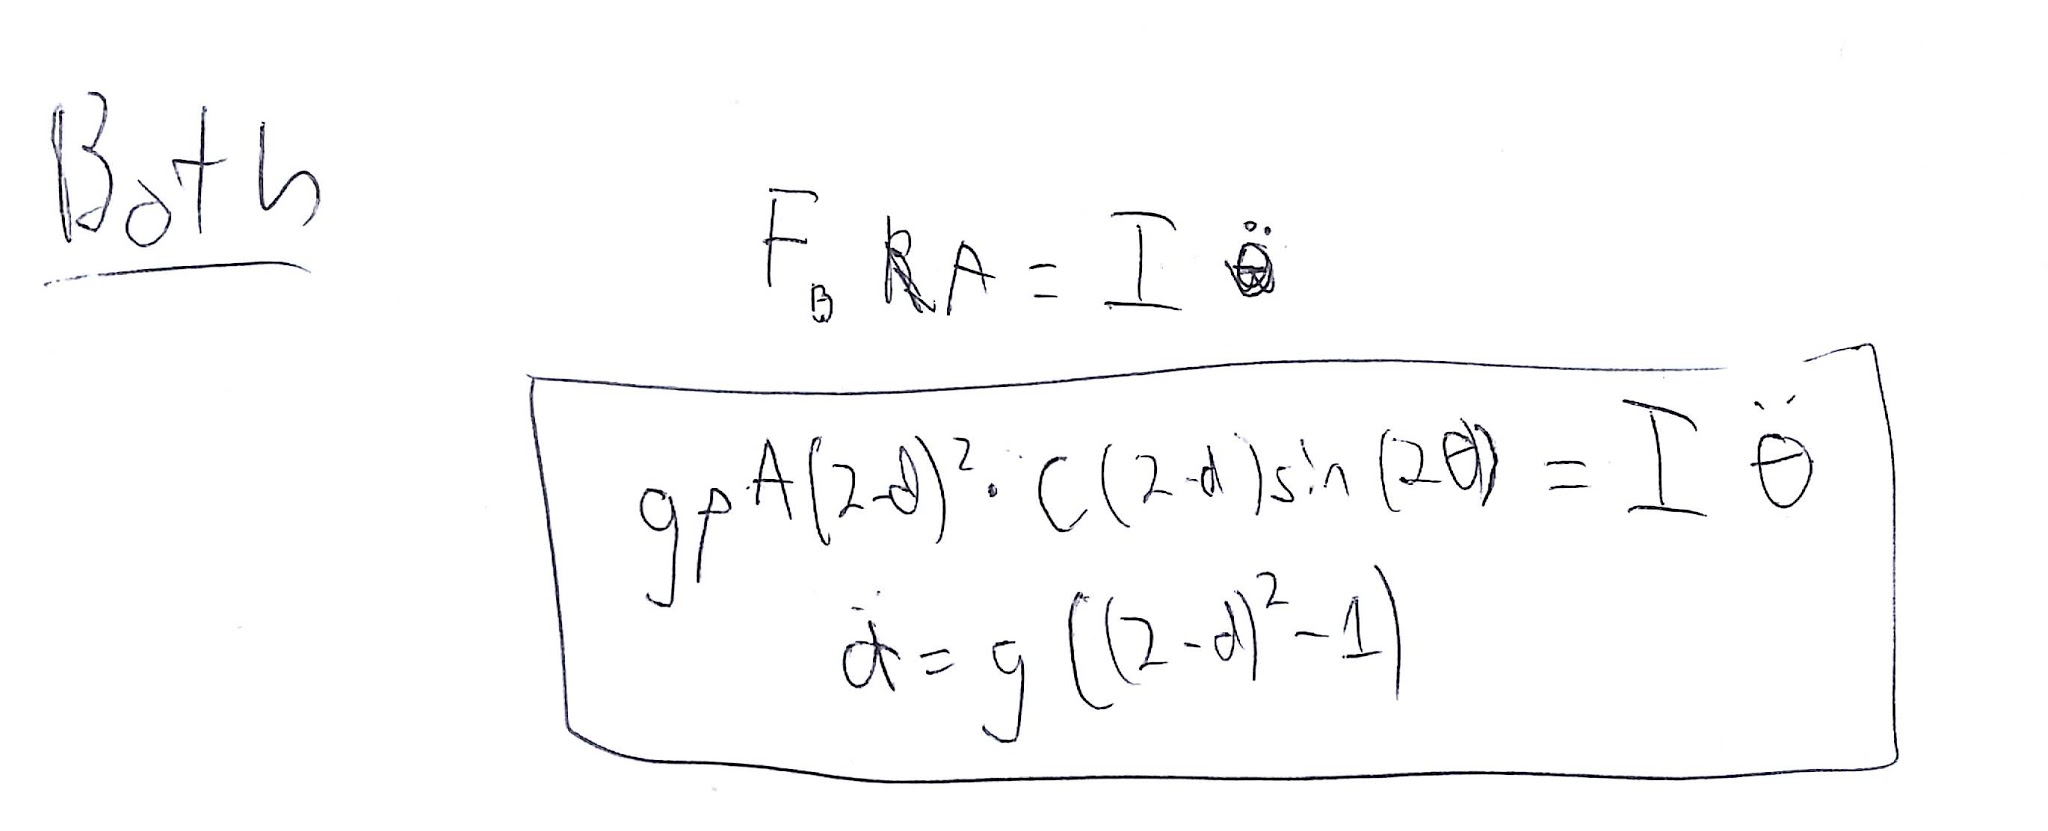 Both
F_B RA = I θ̈
gρA(2-d)²·C(2-d)sin(2θ) = I θ̈
d̈ = g((2-d)²-1)